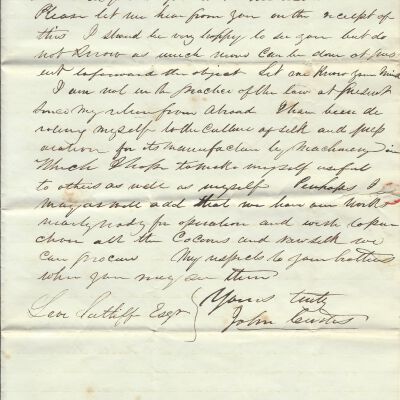 Please let me hear from you on the receipt of
this I should be very happy to see you but do
not know as much more can be done at pres
ent to forward the object Let me know your mind
I am not in the practice of the law at present
Since my return from abroad I have been de
voting myself to the culture of silk and prep
aration for its manufacture by machinery in
Which I hope to make myself useful
to others as well as myself Perhaps I
may as well add that we have our works
nearly ready for operation and wish to pur
chase all the Cocoons and raw silk we
can procure My respects to your brothers
when you may see them
Yours truly
Levi Sutliff Esqr
John Curtis